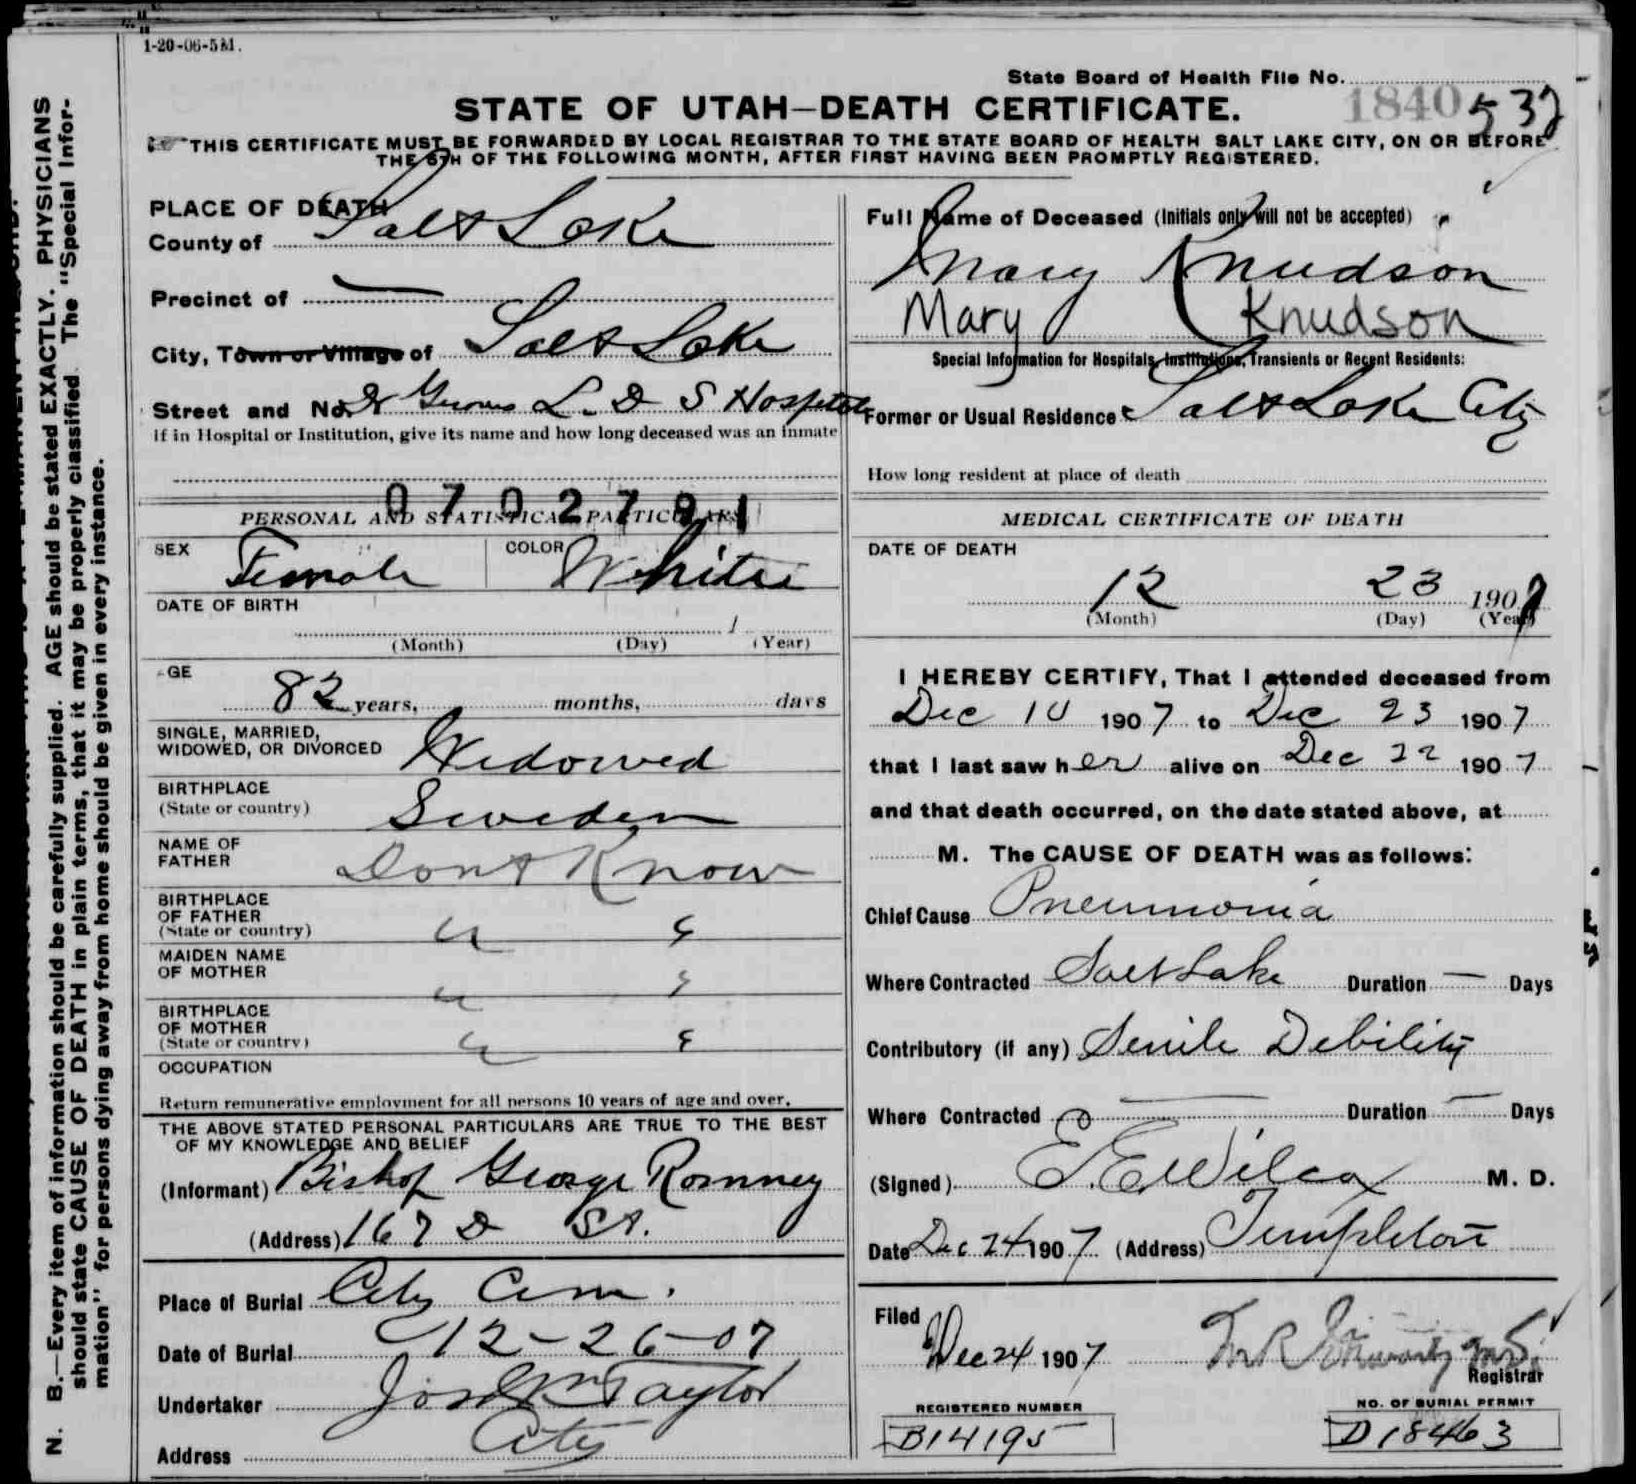 1-20-06-5M.
State Board of Health File No.
1840 532
STATE OF UTAH—DEATH CERTIFICATE.
THIS CERTIFICATE MUST BE FORWARDED BY LOCAL REGISTRAR TO THE STATE BOARD OF HEALTH SALT LAKE CITY, ON OR BEFORE
THE 5TH OF THE FOLLOWING MONTH, AFTER FIRST HAVING BEEN PROMPTLY REGISTERED.
PLACE OF DEATH
County of Salt Lake
Precinct of —
City, Town or Village of Salt Lake
Street and No. Dr Groves L. D S Hospital
If in Hospital or Institution, give its name and how long deceased was an inmate
0702791
PERSONAL AND STATISTICAL PARTICULARS
SEX Female COLOR White
DATE OF BIRTH
(Month) (Day) 1 (Year)
AGE
82 years, months, days
SINGLE, MARRIED,
WIDOWED, OR DIVORCED Widowed
BIRTHPLACE
(State or country) Sweden
NAME OF
FATHER Dont Know
BIRTHPLACE
OF FATHER
(State or country) " "
MAIDEN NAME
OF MOTHER " "
BIRTHPLACE
OF MOTHER
(State or country) " "
OCCUPATION
Return remunerative employment for all persons 10 years of age and over.
THE ABOVE STATED PERSONAL PARTICULARS ARE TRUE TO THE BEST
OF MY KNOWLEDGE AND BELIEF
(Informant) Bishop George Romney
(Address) 167 D St.
Place of Burial City Cem.
Date of Burial 12-26-07
Undertaker Jos Wm Taylor
Address City
Full Name of Deceased (Initials only will not be accepted)
Mary Knudson
Mary ( Knudson
Special Information for Hospitals, Institutions, Transients or Recent Residents:
Former or Usual Residence Salt Lake City
How long resident at place of death
MEDICAL CERTIFICATE OF DEATH
DATE OF DEATH
12 23 1907
(Month) (Day) (Year)
I HEREBY CERTIFY, That I attended deceased from
Dec 10 1907 to Dec 23 1907
that I last saw her alive on Dec 22 1907
and that death occurred, on the date stated above, at
M. The CAUSE OF DEATH was as follows:
Chief Cause Pneumonia
Where Contracted Salt Lake Duration — Days
Contributory (if any) Senile Debility
Where Contracted Duration — Days
(Signed) E. E. Wilcox M. D.
Date Dec 24 1907 (Address) Templeton
Filed
Dec 24 1907
Registrar
REGISTERED NUMBER
B14195
NO. OF BURIAL PERMIT
D18463
N. B.—Every item of information should be carefully supplied. AGE should be stated EXACTLY. PHYSICIANS
should state CAUSE OF DEATH in plain terms, that it may be properly classified. The "Special Infor-
mation" for persons dying away from home should be given in every instance.